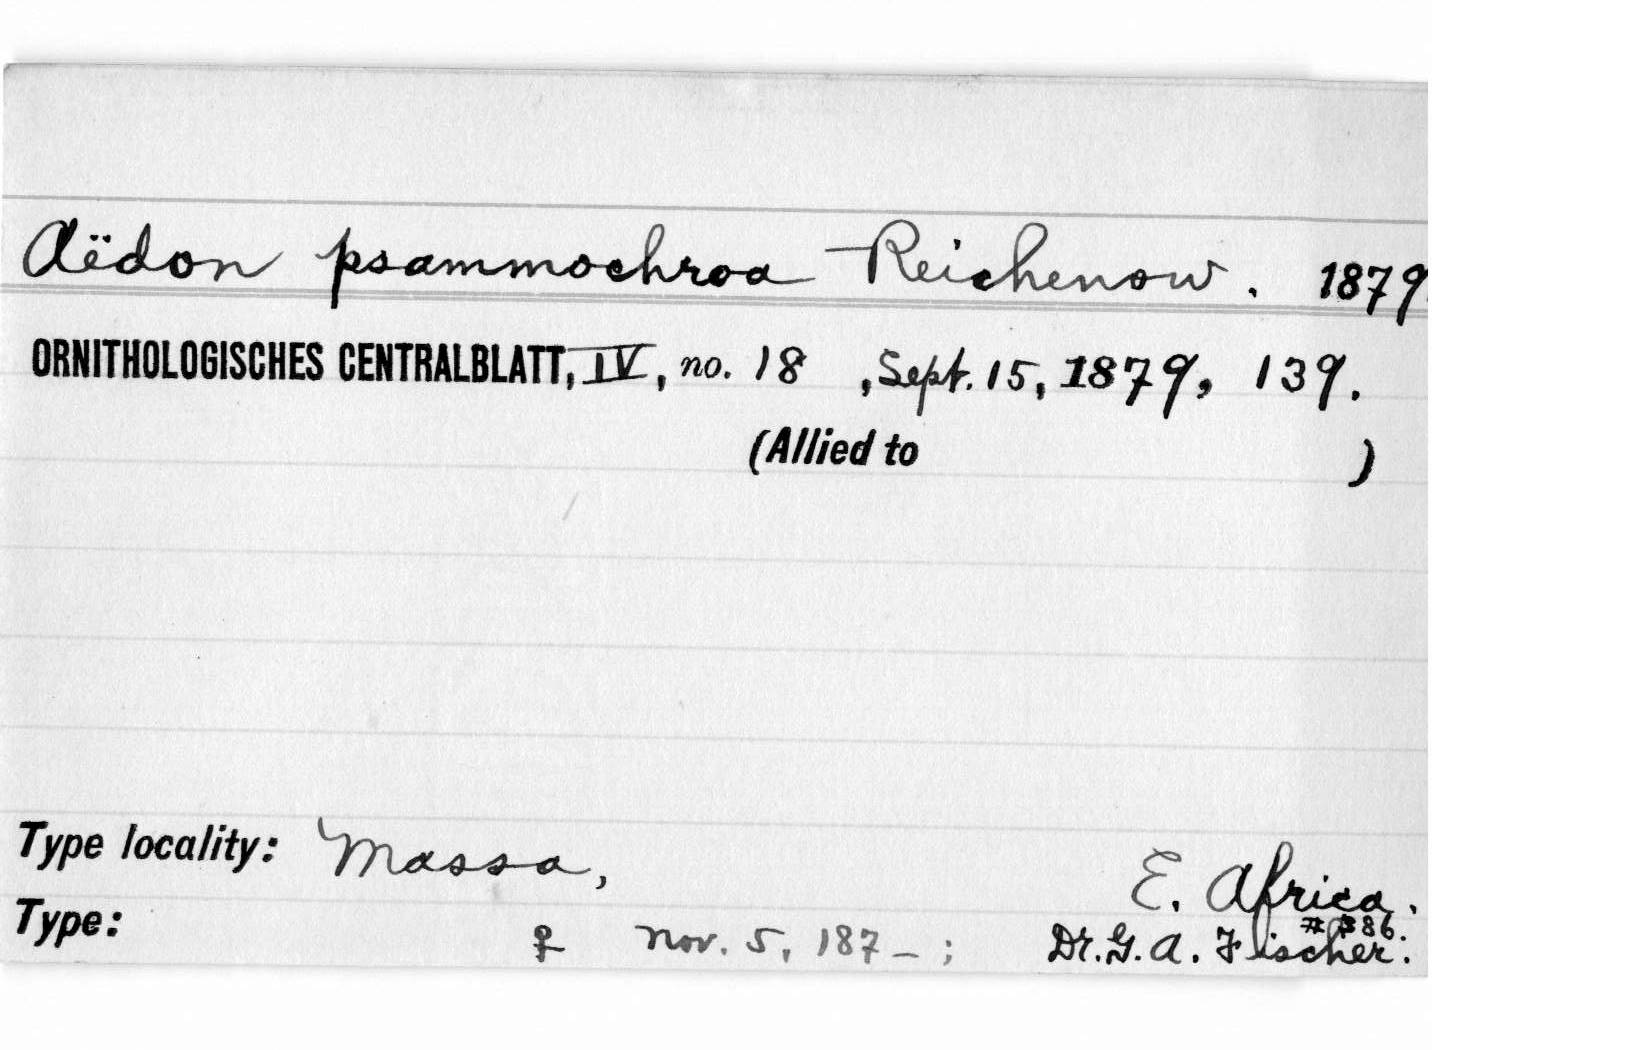 Aëdon psammochroa Reichenow. 1879
ORNITHOLOGISCHES CENTRALBLATT, IV, no. 18, Sept. 15, 1879, 139.
(Allied to )
Type locality: Massa, E. Africa.
#386.
Type: ♀ Nov. 5, 187–; Dr. G. A. Fischer.